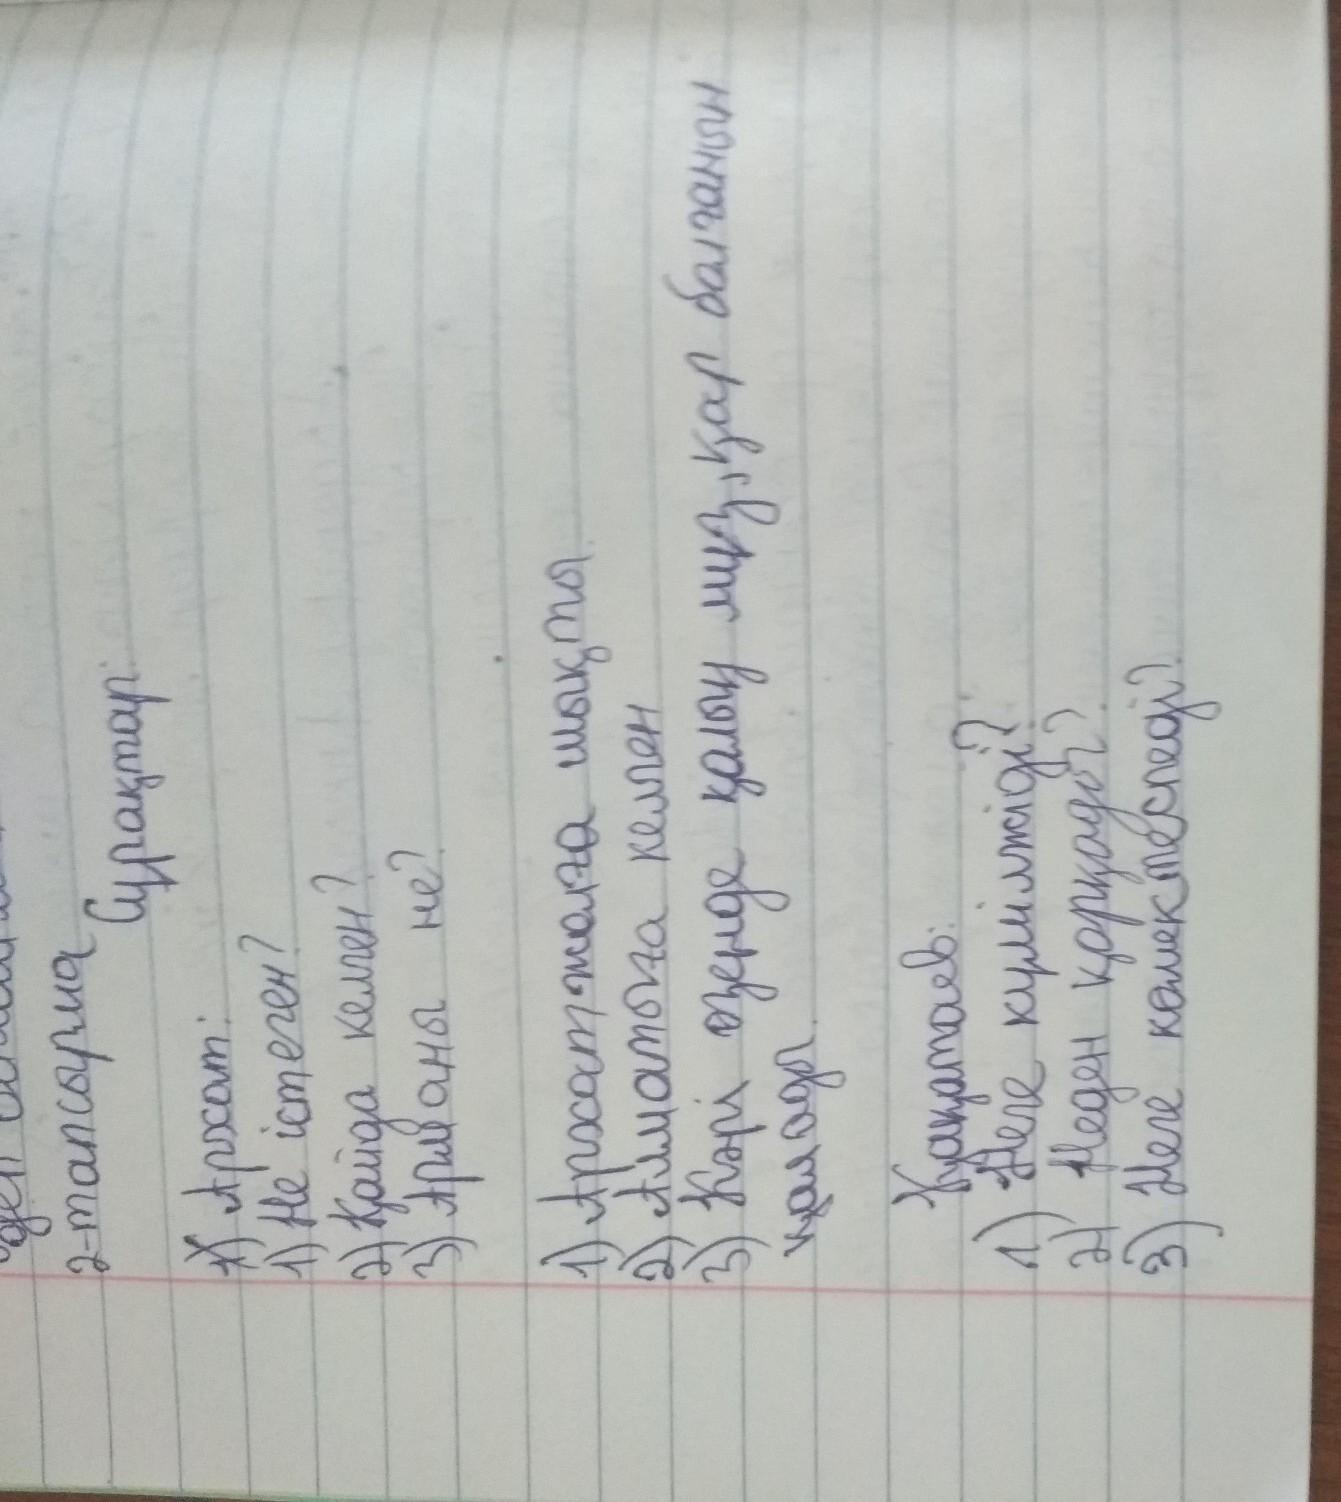 2-тапсырма
Сұрақтар:
1) Архат:
1) Не істеген?
2) Қайда келген?
3) Арманы не?
1) Архат жолға шықты.
2) Алматыға келген
3) Кәрі өзенде қалың мұз, қар болғанын
қалады.
Жақатаев:
1) Неге күлімжіді?
2) Неден қорқады?
3) Неге көмектеспеді?